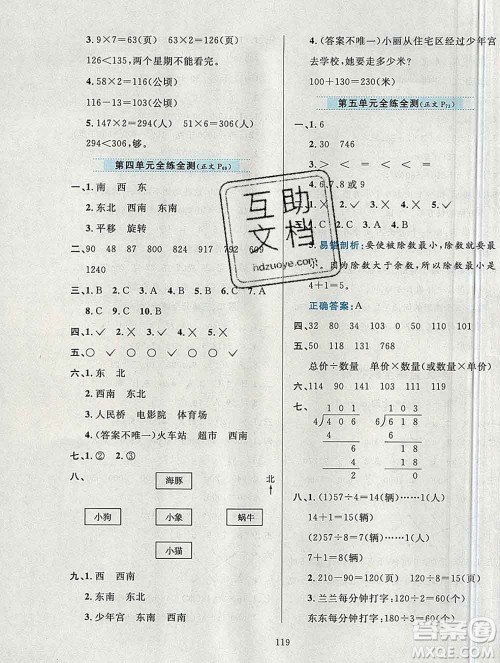 3.9×7=63(页)  63×2=126(页)
126<135,两个星期不能看完。
4.58×2=116(公顷)
116-13=103(公顷)
5.147×2=294(人)
294<306,够。
第四单元全练全测(正文P₆₉)
一、1.南  西南  东
2.东北  西北  东南
3.平移  旋转
二、90  48  87  824  792  609
1240
三、1.B  2.C  3.A  4.B  5.C
8.B  9.C  10.B
四、1.✓  2.✕  3.✕  4.✓  5.✕
五、○  ✓  ○
六、1.东  北
2.西南  东北
3.人民桥  电影院  体育场
4.(答案不唯一)火车站  超市  西南
七、1.②  2.③
八、
海豚
北
小狗  小象  蜗牛
小猫
九、1.西  西南
2.东南  东北
3.少年宫  东南
4.(答案不唯一)小丽从住宅区经过少年宫
去学校,她要走多少米?
100+130=230(米)
第五单元全练全测(正文P₇₃)
一、1.6
2.30  746
3.>  <  =  <  <
4.6、7、8或9
3.易错剖析:要使被除数最小,除数要最
小。因为除数大于余数,所以除数最小是
4+1=5。
正确答案:A
四、32  80  34  103  0  51  0
五、50  118  131  768
总价÷数量  单价×数量(或数量×单价)
六、114  90  141  103  87  63
七、
101  103
4)406  6)618
4  6
6  18
4  18
2  0
八、1.(1)57÷4=14(辆)……1(人)
14+1=15(辆)
(2)57÷8=7(辆)……1(人)
7+1=8(辆)
2.210-90=120(页)  120÷2=60(页)
3.兰兰每分钟打字:120÷2=60(个)
东东每分钟打字:180÷3=60(个)
119
互助
文档
hdzuoye.com
作业帮
MXQE.COM